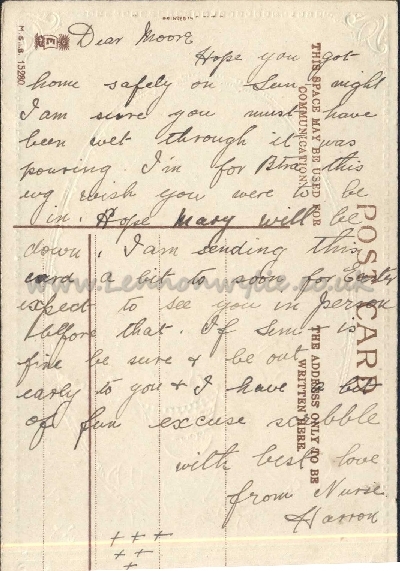 PRINTED IN
M.S.i.B. 15280
Dear Moore
Hope you got
home safely on Sun night
I am sure you must have
been wet through it was
pouring. I'm for this
evg wish you were to be
in. Hope Mary will be
down. I am sending this
card a bit to soon for Easter
expect to see you in person
before that. If Sun is
fine be sure & be out
early to you & I have a bit
of fun excuse scribble
with best love
from Nurse
Harron
+++
++
+
THIS SPACE MAY BE USED FOR
COMMUNICATION
POST CARD
THE ADDRESS ONLY TO BE
WRITTEN HERE.